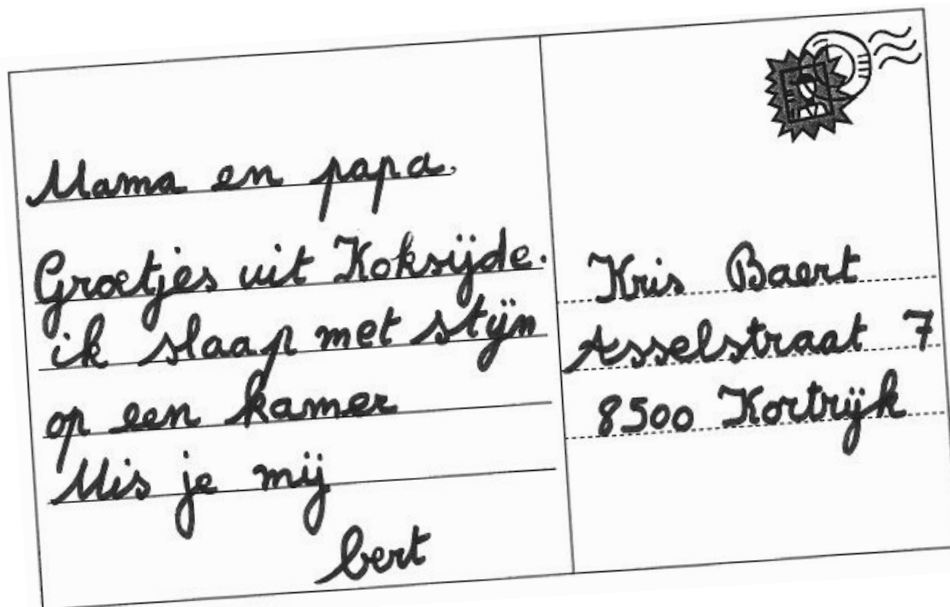 Mama en papa.
Groetjes uit Koksijde.
ik slaap met stijn
op een kamer
Mis je mij
bert
Kris Baert
Asselstraat 7
8500 Kortrijk